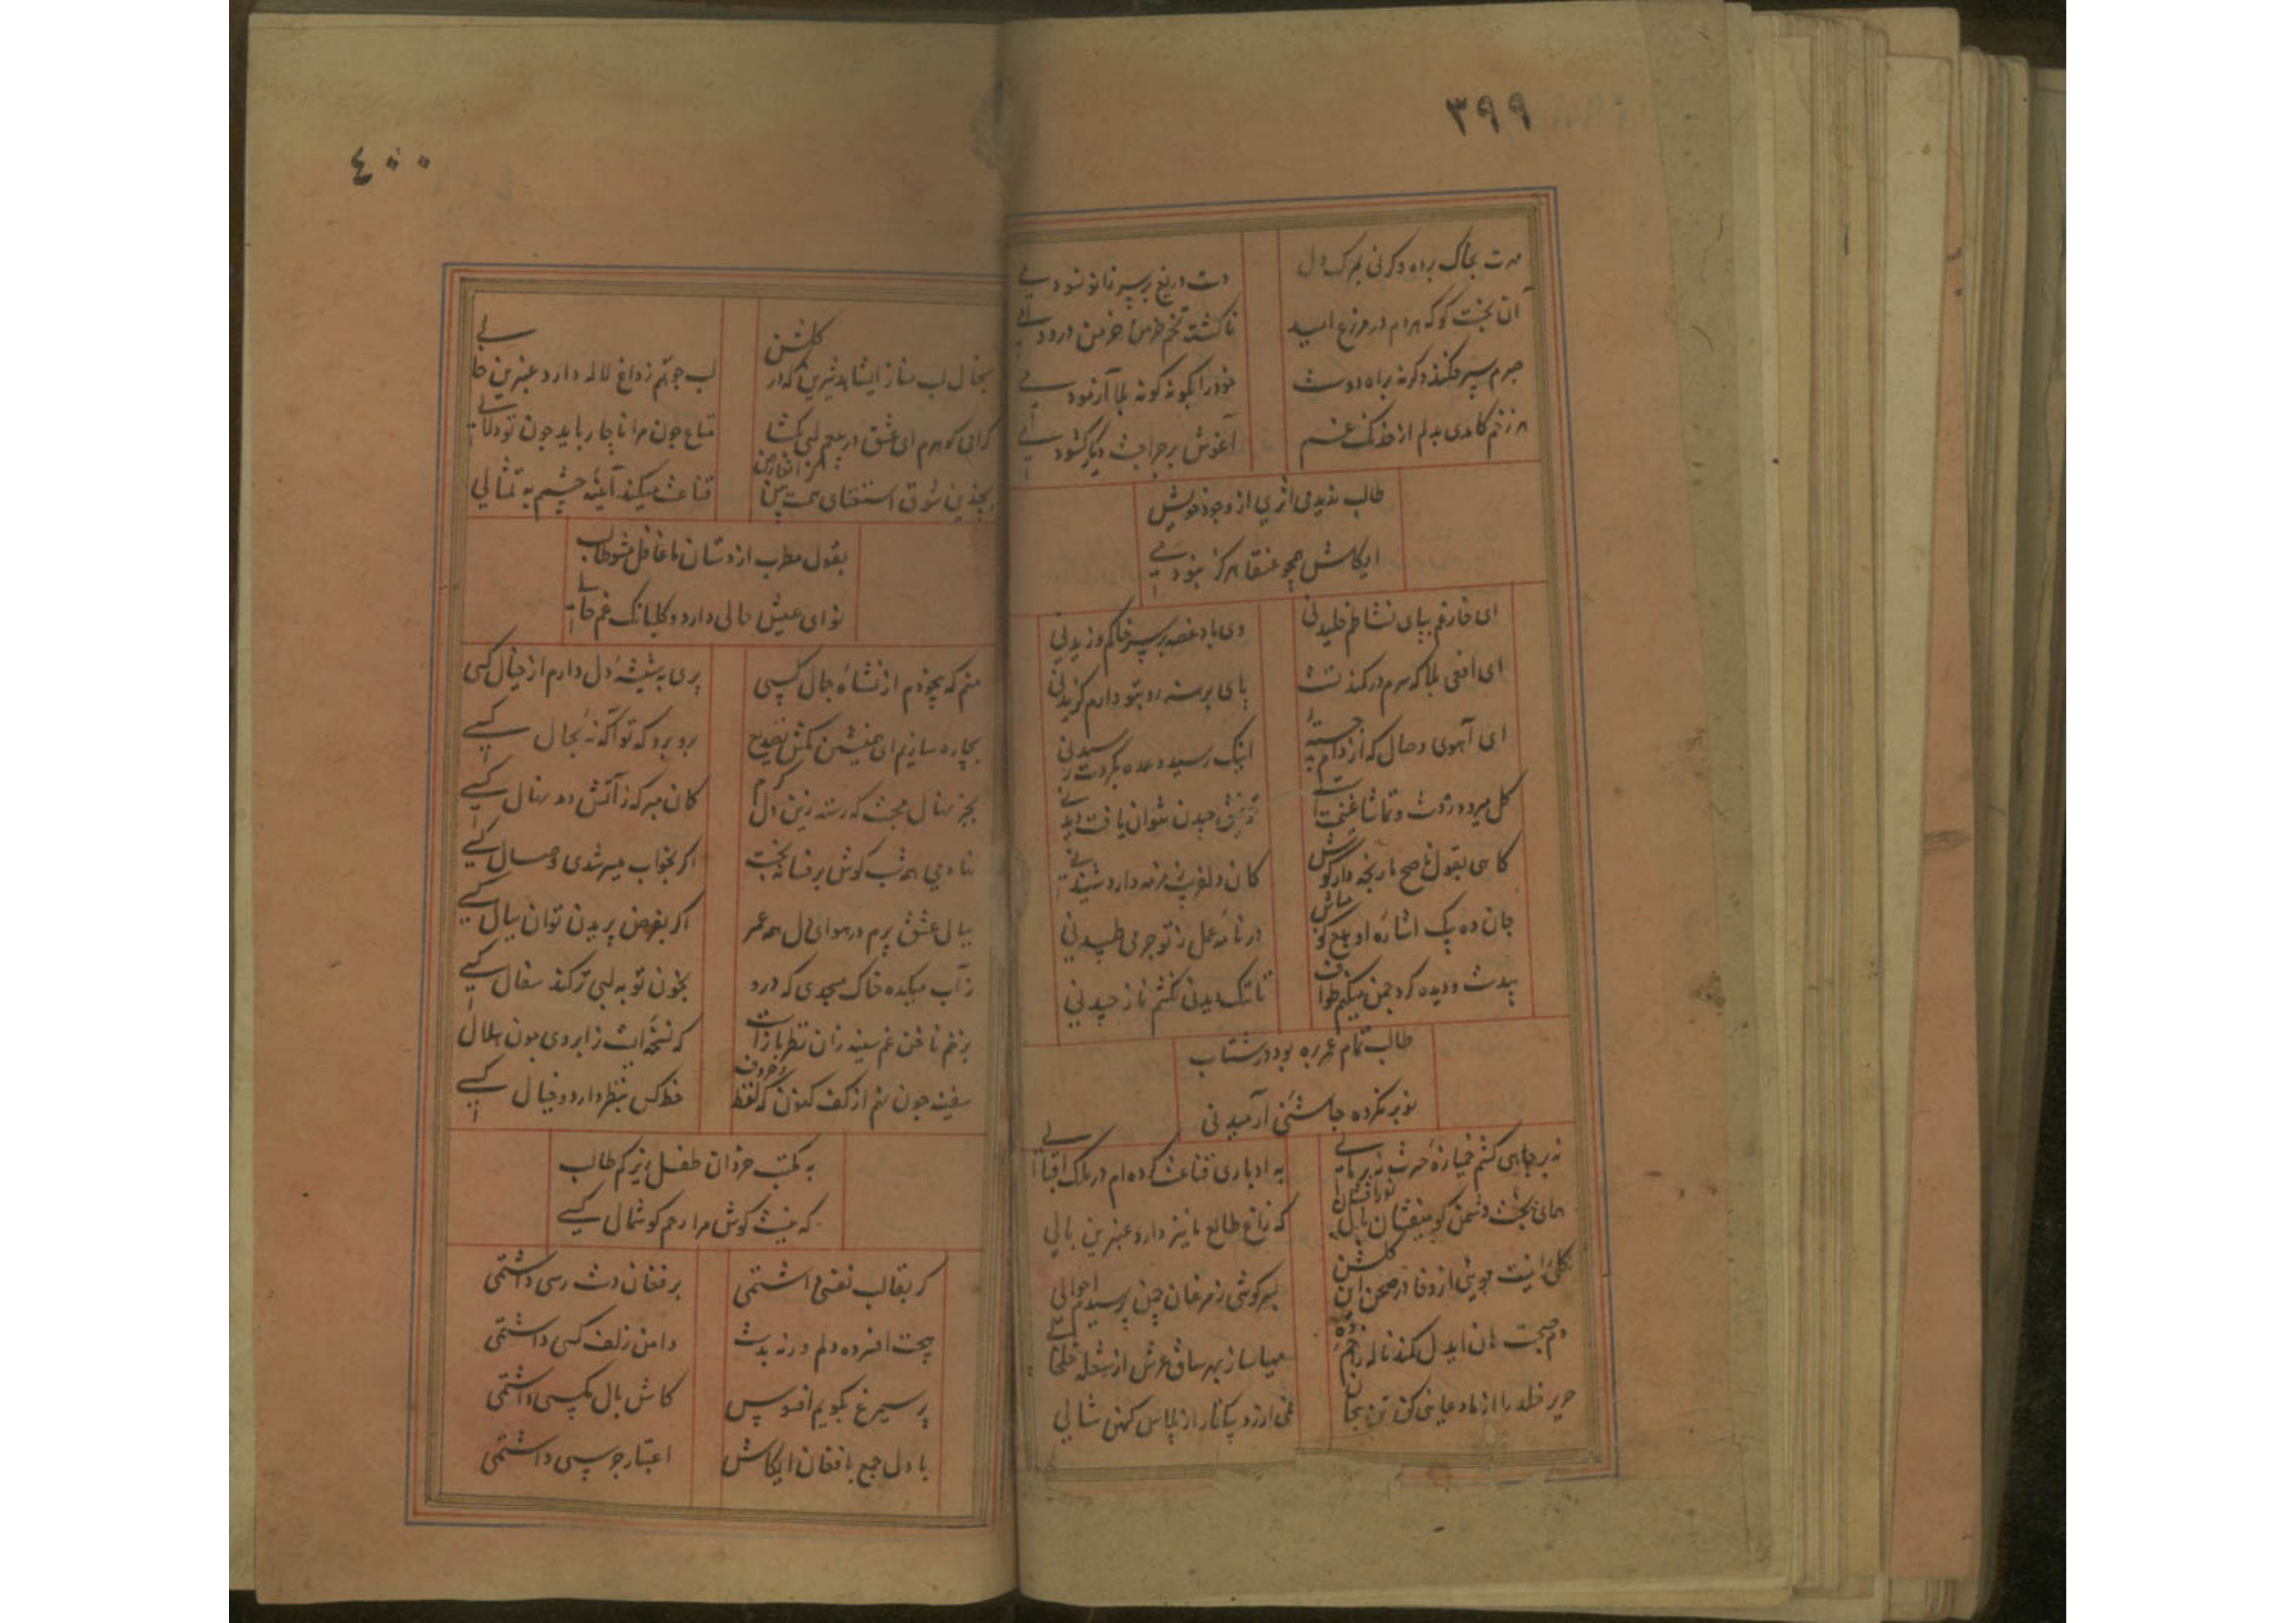 ۳۹۹
مهرت بخاک برده و کرنی بمرک دل
دست دریغ بر سر زانو نسودمی
آن بخت کو که هر دم در مزرع امید
ناکشته تخم خرمن خرمن درودمی
جرم سپر فکند وکرنه براه دوست
خود را بکونه کونه بلا آزمودمی
هر زخم کامدی بدلم از خدنک غم
آغوش بر جراحت دیکر کشودمی
طالب ندیدمی اثری از وجود خویش
ایکاش همچو عنقا هرکز نبودمی
ای خار غم بپای نشاطم خلیدنی
وی باد غصه بر سر خاکم وزیدنی
ای افعی بلا که سرم در کمند تست
پای برسته رو بتو دارم کزیدنی
ای آهوی وصال که از دام جسته
اینک رسید وعده بکردت رسیدنی
کل میرود ز دست و تماشا غنیمت است
توفیق چیدن نتوان یافت دیدنی
کاهی بقول ناصح ما رنجه دار کوش
کان دلفریب زمزمه دارد شنیدنی
جان ده بیک اشاره او
در نامه عمل را توجر می طپیدنی
پندت و دیده کرد چمن میکنم طواف
تا تنک دیدنی نکشم ناز چیدنی
طالب تمام عمر بره بود در شتاب
نوبر نکرده چاشنی آرمیدنی
نه بر جاهی کشم خمیازه حسرت نه بر مالی
به ادباری قناعت کرده ام در ملک اقبالی
همای بخت دشمن کو میفشان بال نورافشان
که زاغ طالع ما نیز دارد عنبرین بالی
کلی را نیست بویی از وفا در صحن این کلشن
بسرکوشی ز مرغان چمن پرسیدم احوالی
دم صبحت هان ایدل کمند ناله را خم ده
مهیا ساز بهر ساق عرش از شعله خلخالی
حریر خلد را از ما دعایی کن تن بیجان
نمی ارزد بیکتار از پلاس کهنه شالی
۴۰۰
بخال لب مناز ایشاهد شیرین که در کلشن
لب جو هم ز داغ لاله دارد عنبرین خالی
کرانی کو هرم ای عشق در بیعم لبی بکشا
متاع چون مرا ناچار باید چون تو دلالی
بچندین شوق استغنای همت بین
قناعت میکند آیینه چشم به تمثالی
بقول مطرب از دستان ما غافل مشو طالب
نوای عیش حالی دارد و کلبانک غم حالی
منم که بیخودم از نشاه جمال کسی
پری به شیشه دل دارم از خیال کسی
بچاره سازیم ای همنشین مکش تصدیع
برو برو که تو آکه نه بحال کسی
بجز نهال محبت که رسته زین دل کرم
کمان مبر که ز آتش دمد نهال کسی
نهادمی همه شب کوش بر فسانه بخت
اکر بخواب میسر شدی وصال کسی
ببال عشق پرم در هوای دل همه عمر
اکر بفرض پریدن توان ببال کسی
ز آب میکده خاک مسجدی که درو
بخون توبه لبی تر کند سفال کسی
بزخم ناخن غم سینه زان نظر بازست
که نسخه ایست ز ابروی چون هلال کسی
سفینه چون نهم از کف کنون که لفظ و حروف
خط کس بنظر دارد و خیال کسی
به مکتب خردان طفل زیرکم طالب
که نیست کوش مرا رحم کوشمالی کسی
کر بقالب نفسی داشتمی
بر فغان دست رسی داشتمی
بخت افسرده دلم ورنه بدست
دامن زلف کسی داشتمی
پر سیمرغ بکویم افسوس
کاش بال مکسی داشتمی
با دل جمع بافغان ایکاش
اعتبار جرسی داشتمی